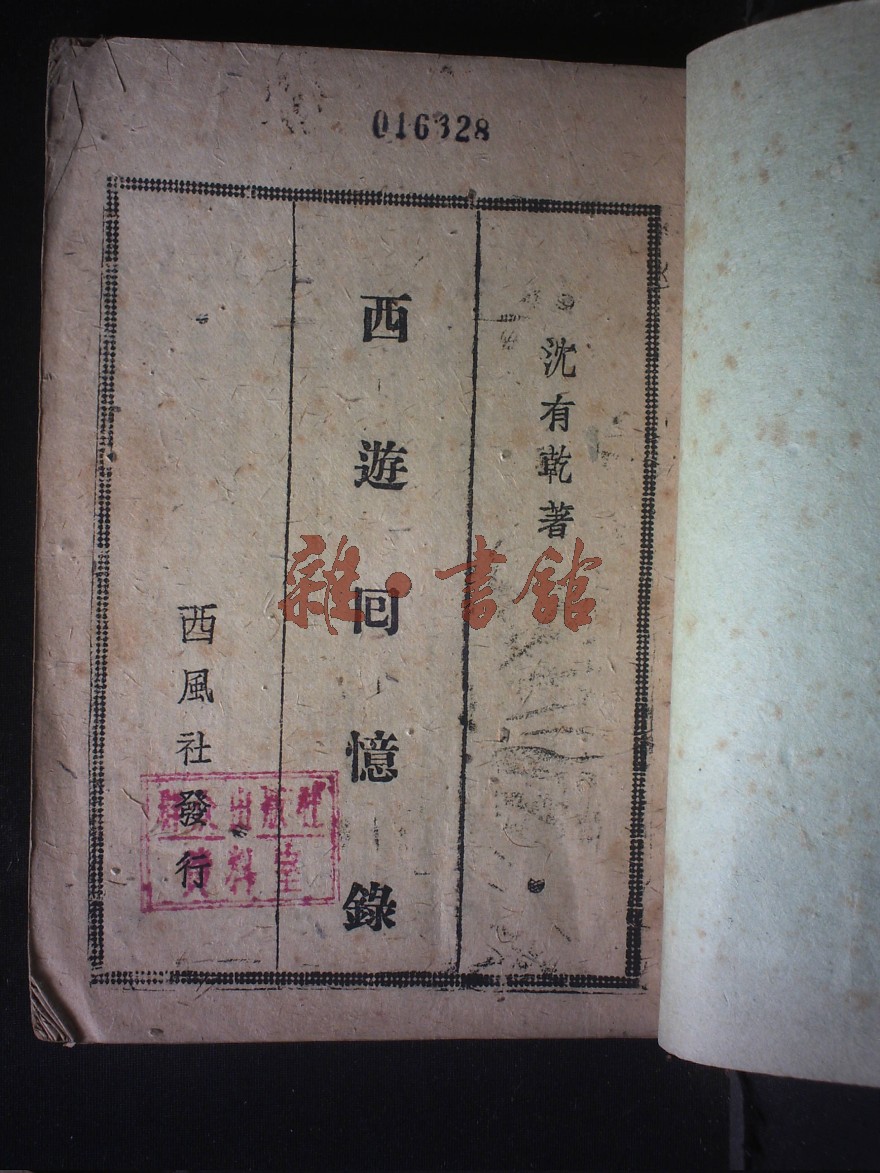 016328
沈有乾著
西遊回憶錄
西風社發行
雜·書舘
群众出版社
資料室